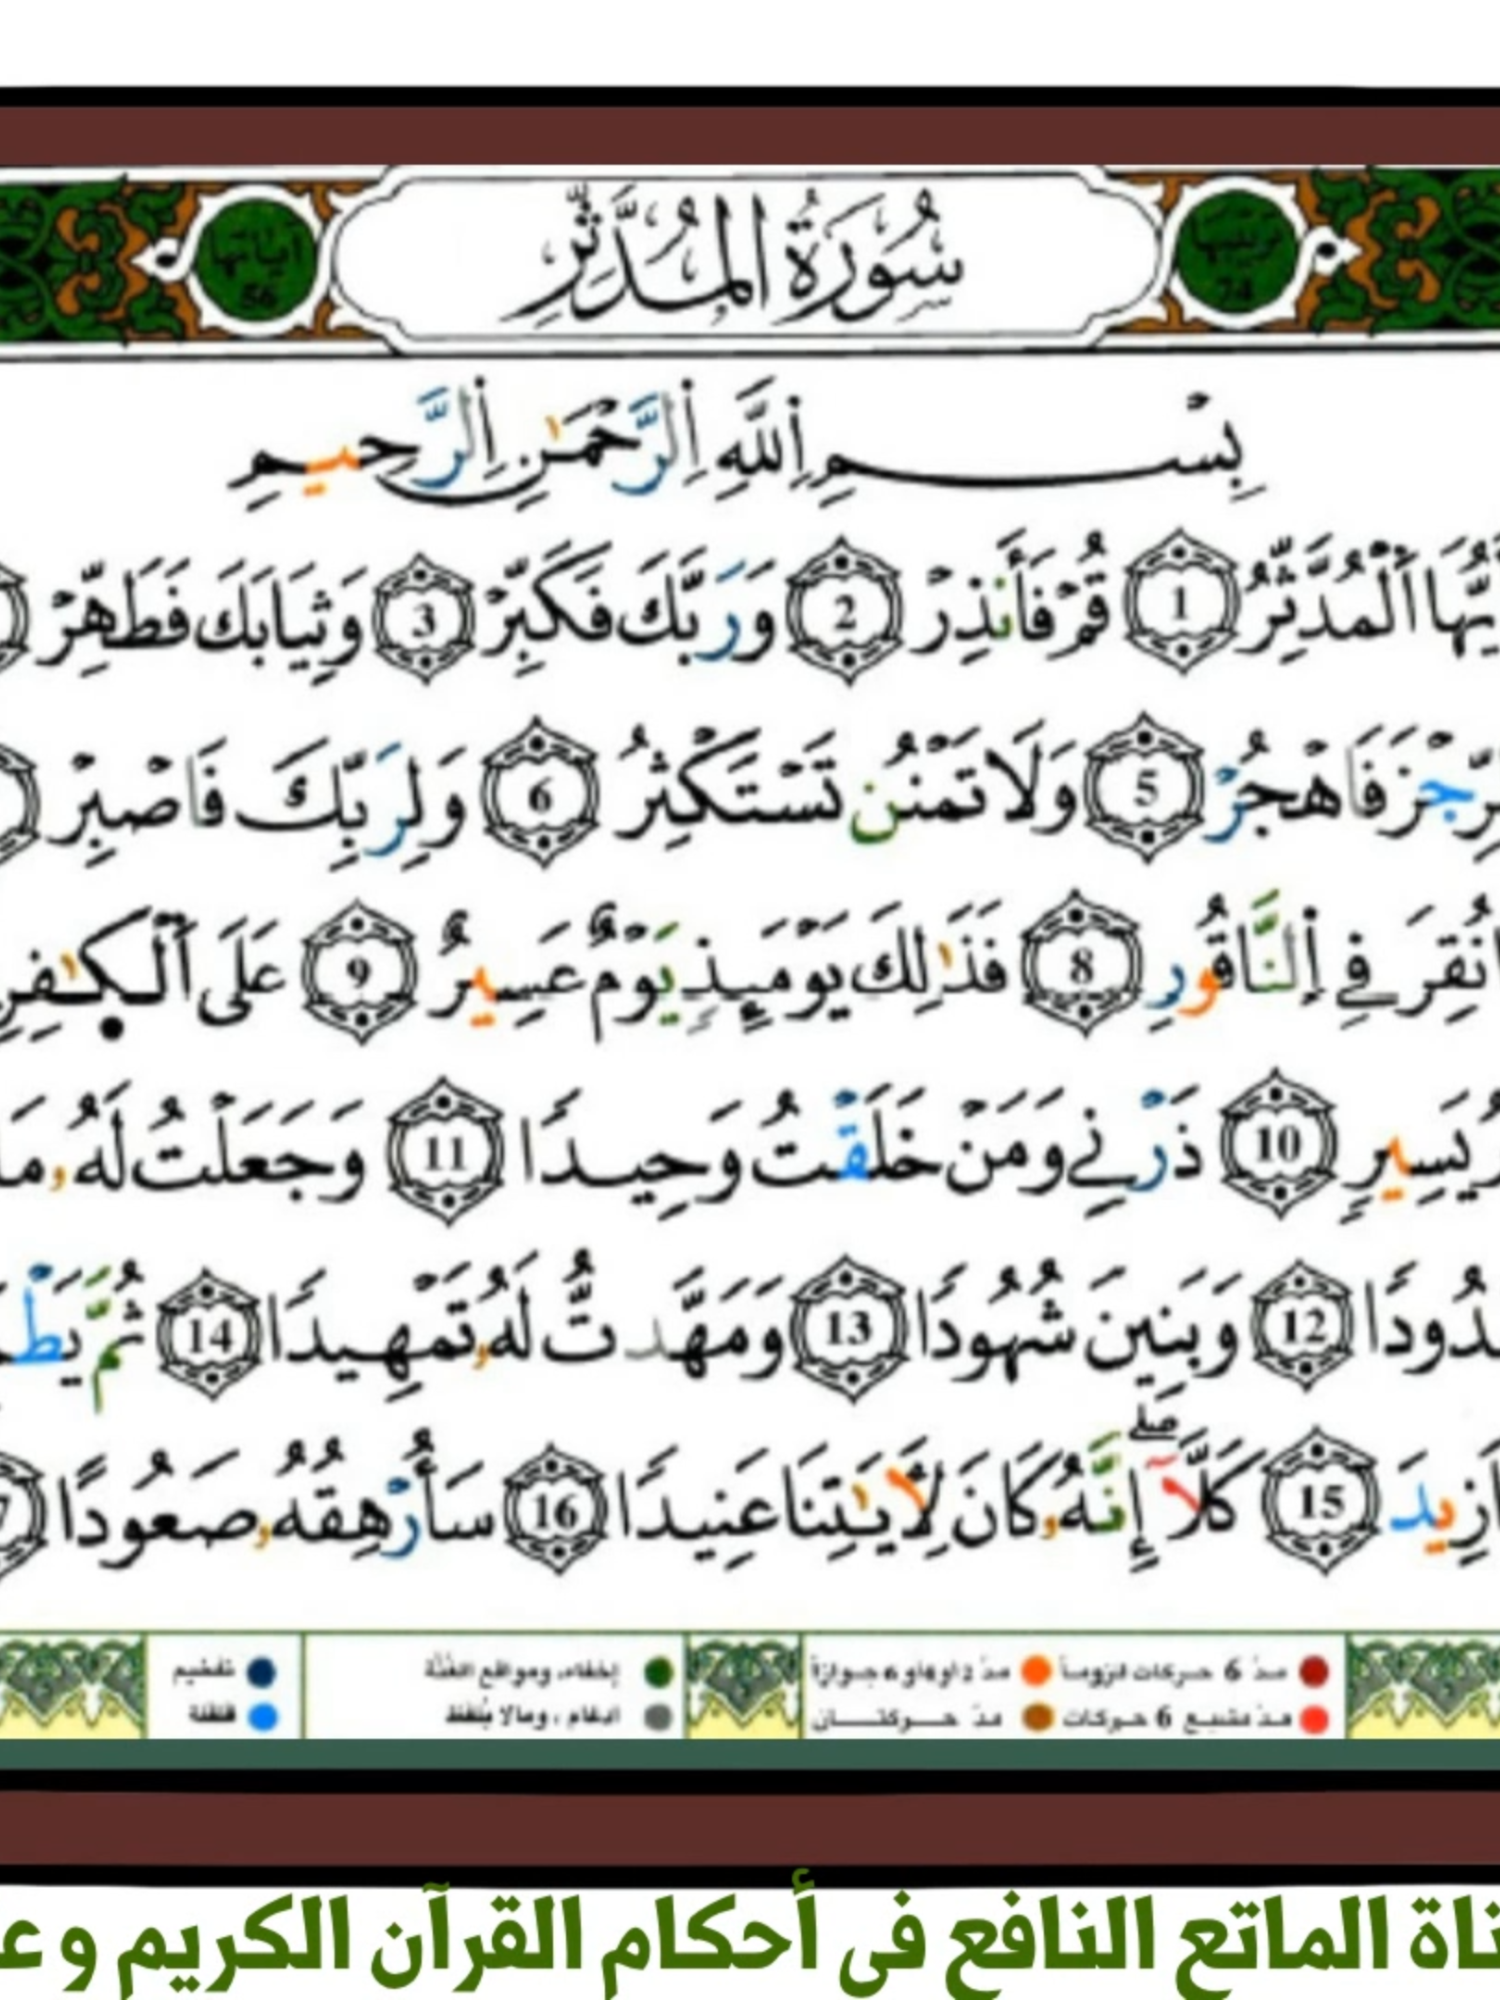 سُورَةُ الْمُدَّثِّرِ
ترتيبها 74
آياتها 56
بِسْمِ اِللَّهِ اِلرَّحْمَٰنِ اِلرَّحِيمِ
يُّهَا اَلْمُدَّثِّرُ 1 قُمْ فَأَنذِرْ 2 وَرَبَّكَ فَكَبِّرْ 3 وَثِيَابَكَ فَطَهِّرْ
رِّجْزَ فَاهْجُرْ 5 وَلَا تَمْنُن تَسْتَكْثِرُ 6 وَلِرَبِّكَ فَاصْبِرْ
نُقِرَ فِي اِلنَّاقُورِ 8 فَذَٰلِكَ يَوْمَئِذٍ يَوْمٌ عَسِيرٌ 9 عَلَى اَلْكَٰفِرِ
يَسِيرٍ 10 ذَرْنِي وَمَنْ خَلَقْتُ وَحِيدًا 11 وَجَعَلْتُ لَهُۥ مَا
دُودًا 12 وَبَنِينَ شُهُودًا 13 وَمَهَّدتُّ لَهُۥ تَمْهِيدًا 14 ثُمَّ يَطْ
أَزِيدَ 15 كَلَّآ ۖ إِنَّهُۥ كَانَ لِأٓيَٰتِنَا عَنِيدًا 16 سَأُرْهِقُهُۥ صَعُودًا 7
مدّ 6 حركات لزوماً مدّ 2 أو 4 أو 6 جوازاً إخفاء، ومواقع الغُنَّة تفخيم
مدّ مشبع 6 حركات مدّ حركتان ادغام، ومالا يُلفظ قلقلة
ناة الماتع النافع فى أحكام القرآن الكريم و ع